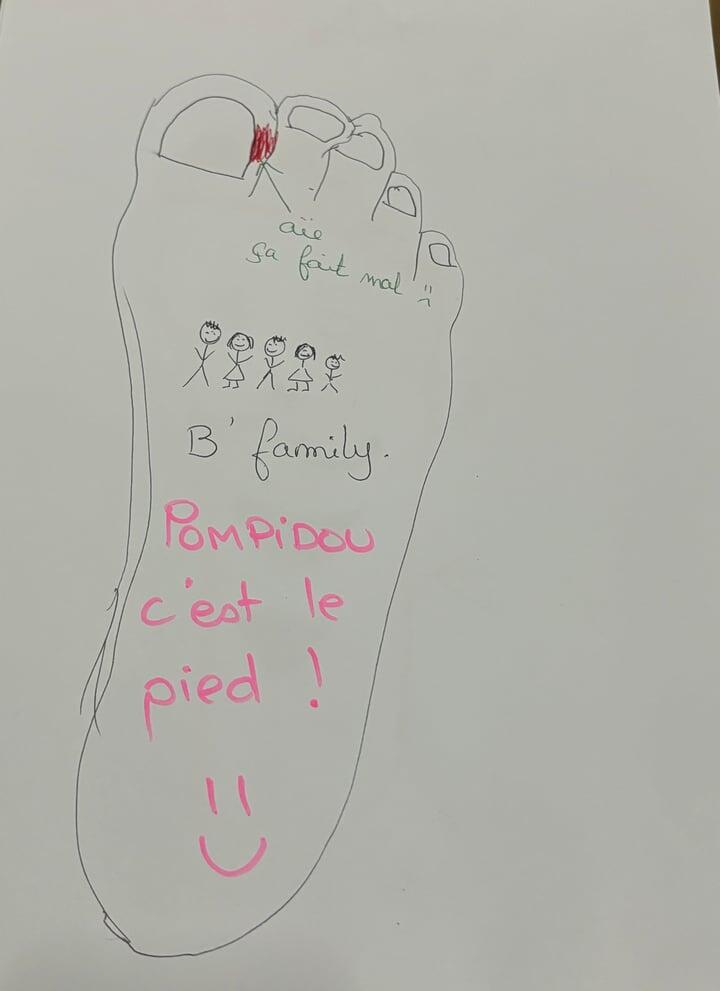 aïe
ça fait mal :(
B' family.
POMPiDOU
c'est le
pied !